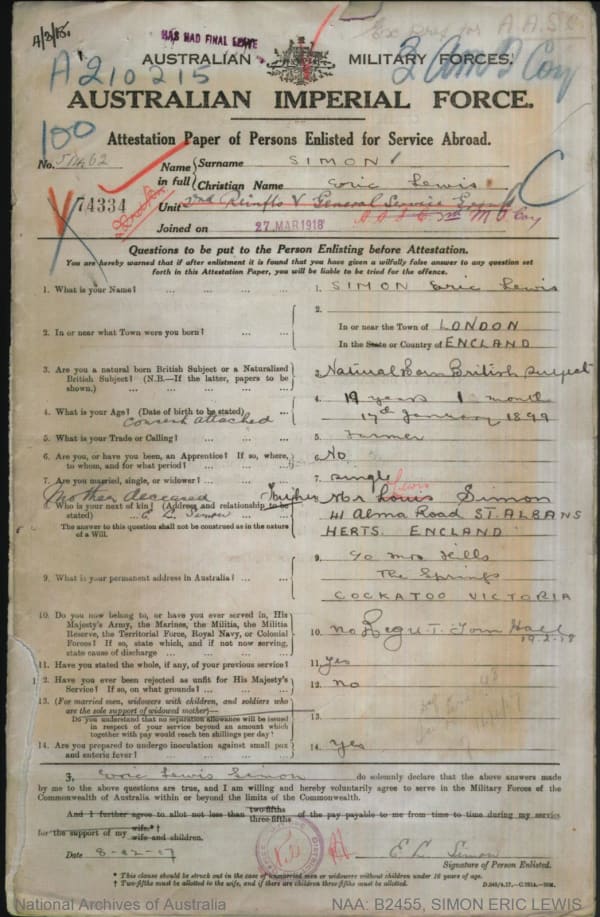 4/3/18
HAS HAD FINAL LEAVE
A.A.S.C.
AUSTRALIAN MILITARY FORCES.
A210215
2 Am T Coy
AUSTRALIAN IMPERIAL FORCE.
100
Attestation Paper of Persons Enlisted for Service Abroad.
No.
Name in full { Surname SIMON
Christian Name Eric Lewis
74334
Unit 2nd Reinfts V General Service
Joined on 27 MAR 1918
C
Questions to be put to the Person Enlisting before Attestation.
You are hereby warned that if after enlistment it is found that you have given a wilfully false answer to any question set
forth in this Attestation Paper, you will be liable to be tried for the offence.
1. What is your Name? ... ... ... ... 1. SIMON Eric Lewis
2.
2. In or near what Town were you born? ... ... In or near the Town of LONDON
In the State or Country of ENGLAND
3. Are you a natural born British Subject or a Naturalised
British Subject? (N.B.—If the latter, papers to be
shown.) ... ... ... ... 3. Natural born British subject
4. What is your Age? (Date of birth to be stated) 4. 19 years 1 month
consent attached 17th January 1899
5. What is your Trade or Calling? ... ... ... 5. Farmer
6. Are you, or have you been, an Apprentice? If so, where,
to whom, and for what period? ... ... ... 6. No
7. Are you married, single, or widower? ... ... 7. Single
Mother deceased Father Mr Louis Simon
Lewis
8. Who is your next of kin? (Address and relationship to be
stated) ... E. L. Simon 41 Alma Road ST. ALBANS
The answer to this question shall not be construed as in the nature
of a Will. HERTS. ENGLAND
9. What is your permanent address in Australia? ... ... 9. c/o Mrs Hills
The Springs
COCKATOO VICTORIA
10. Do you now belong to, or have you ever served in, His
Majesty's Army, the Marines, the Militia, the Militia
Reserve, the Territorial Force, Royal Navy, or Colonial
Forces? If so, state which, and if not now serving,
state cause of discharge ... ... ... 10. No Regr T. Town Hall
19.2.18
11. Have you stated the whole, if any, of your previous service? 11. Yes
12. Have you ever been rejected as unfit for His Majesty's
Service? If so, on what grounds? ... ... 12. No
13. (For married men, widowers with children, and soldiers who
are the sole support of widowed mother)—
Do you understand that no separation allowance will be issued
in respect of your service beyond an amount which
together with pay would reach ten shillings per day? 13.
14. Are you prepared to undergo inoculation against small pox
and enteric fever? ... ... ... 14. Yes
3. Eric Lewis Simon do solemnly declare that the above answers
made by me to the above questions are true, and I am willing and hereby voluntarily agree to serve in the Military Forces of the
Commonwealth of Australia within or beyond the limits of the Commonwealth.
And I further agree to allot not less than two-fifths three-fifths of the pay payable to me from time to time during my service
for the support of my wife.*† wife and children.
Date E. L. Simon
Signature of Person Enlisted.
* This clause should be struck out in the case of unmarried men or widowers without children under 16 years of age.
† Two-fifths must be allotted to the wife, and if there are children three-fifths must be allotted.
National Archives of Australia NAA: B2455, SIMON ERIC LEWIS